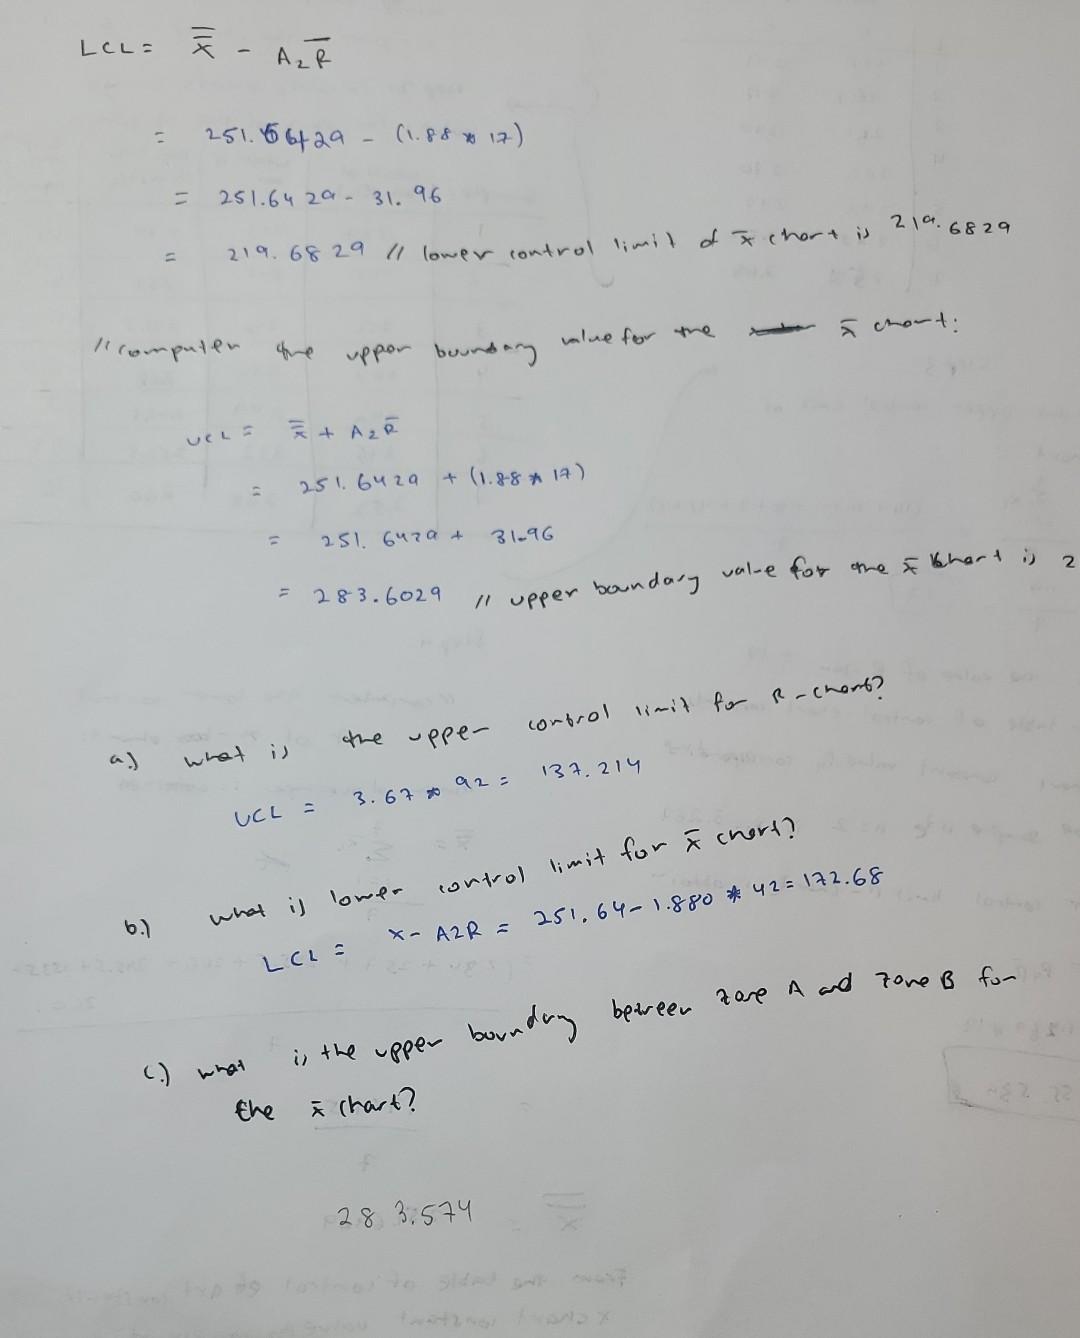 LCL = x̿ - A₂R̅
= 251.6429 - (1.88 * 17)
= 251.6429 - 31.96
= 219.6829 // lower control limit of x̅ chart is 219.6829
// computer the upper boundary value for the x̅ chart:
UCL = x̿ + A₂R̅
= 251.6429 + (1.88 * 17)
= 251.6429 + 31.96
= 283.6029 // upper boundary value for the x̅ chart is 2
a.) what is the upper control limit for R-chart?
UCL = 3.67 * 92 = 137.214
b.) what is lower control limit for x̅ chart?
LCL = x - A2R = 251.64 - 1.880 * 42 = 172.68
c.) what is the upper boundary between zone A and zone B for
the x̅ chart?
283.574